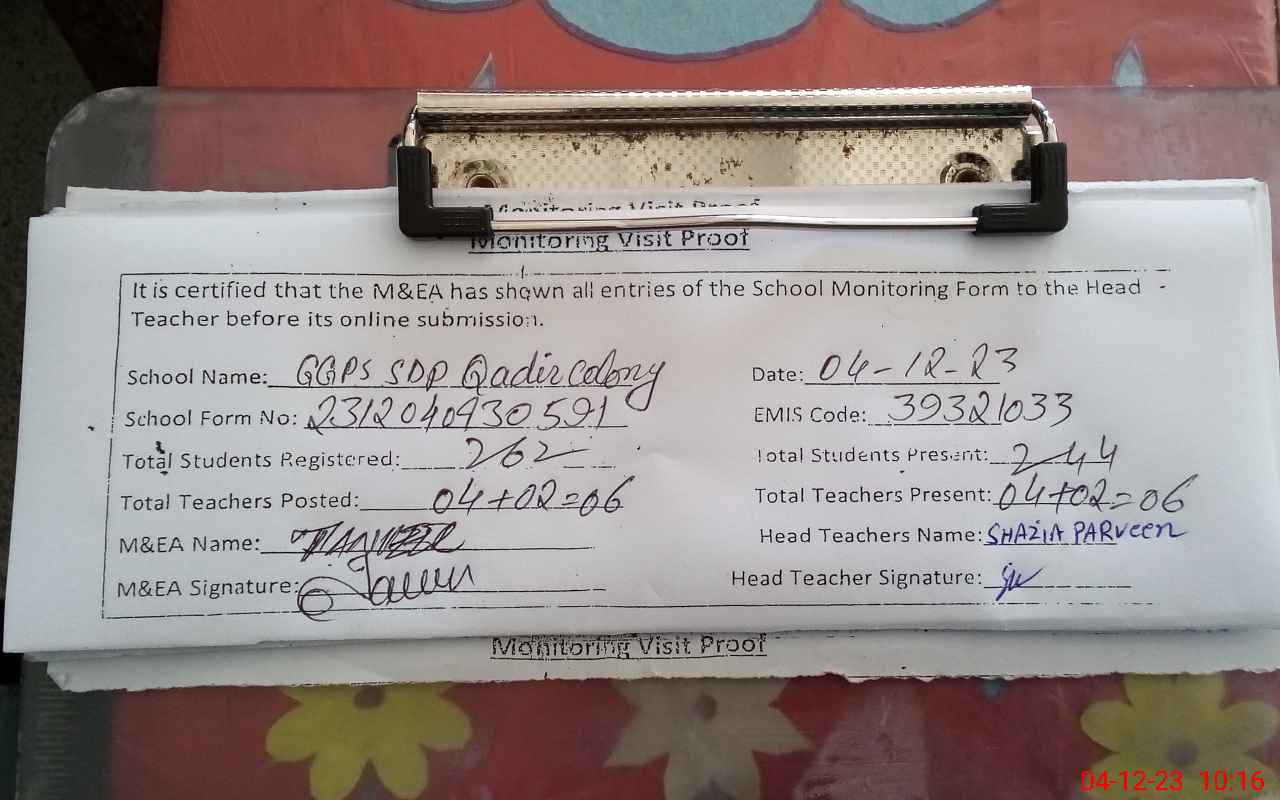 Monitoring Visit Proof
Monitoring Visit Proof
It is certified that the M&EA has shown all entries of the School Monitoring Form to the Head
Teacher before its online submission.
School Name: GGPS SDP Qadir colony Date: 04-12-23
School Form No: 2312040930591 EMIS Code: 39321033
Total Students Registered: 262 Total Students Present: 244
Total Teachers Posted: 04+02=06 Total Teachers Present: 04+02=06
M&EA Name: TANVEER Head Teachers Name: SHAZIA PARveen
M&EA Signature: Head Teacher Signature:
Monitoring Visit Proof
04-12-23 10:16